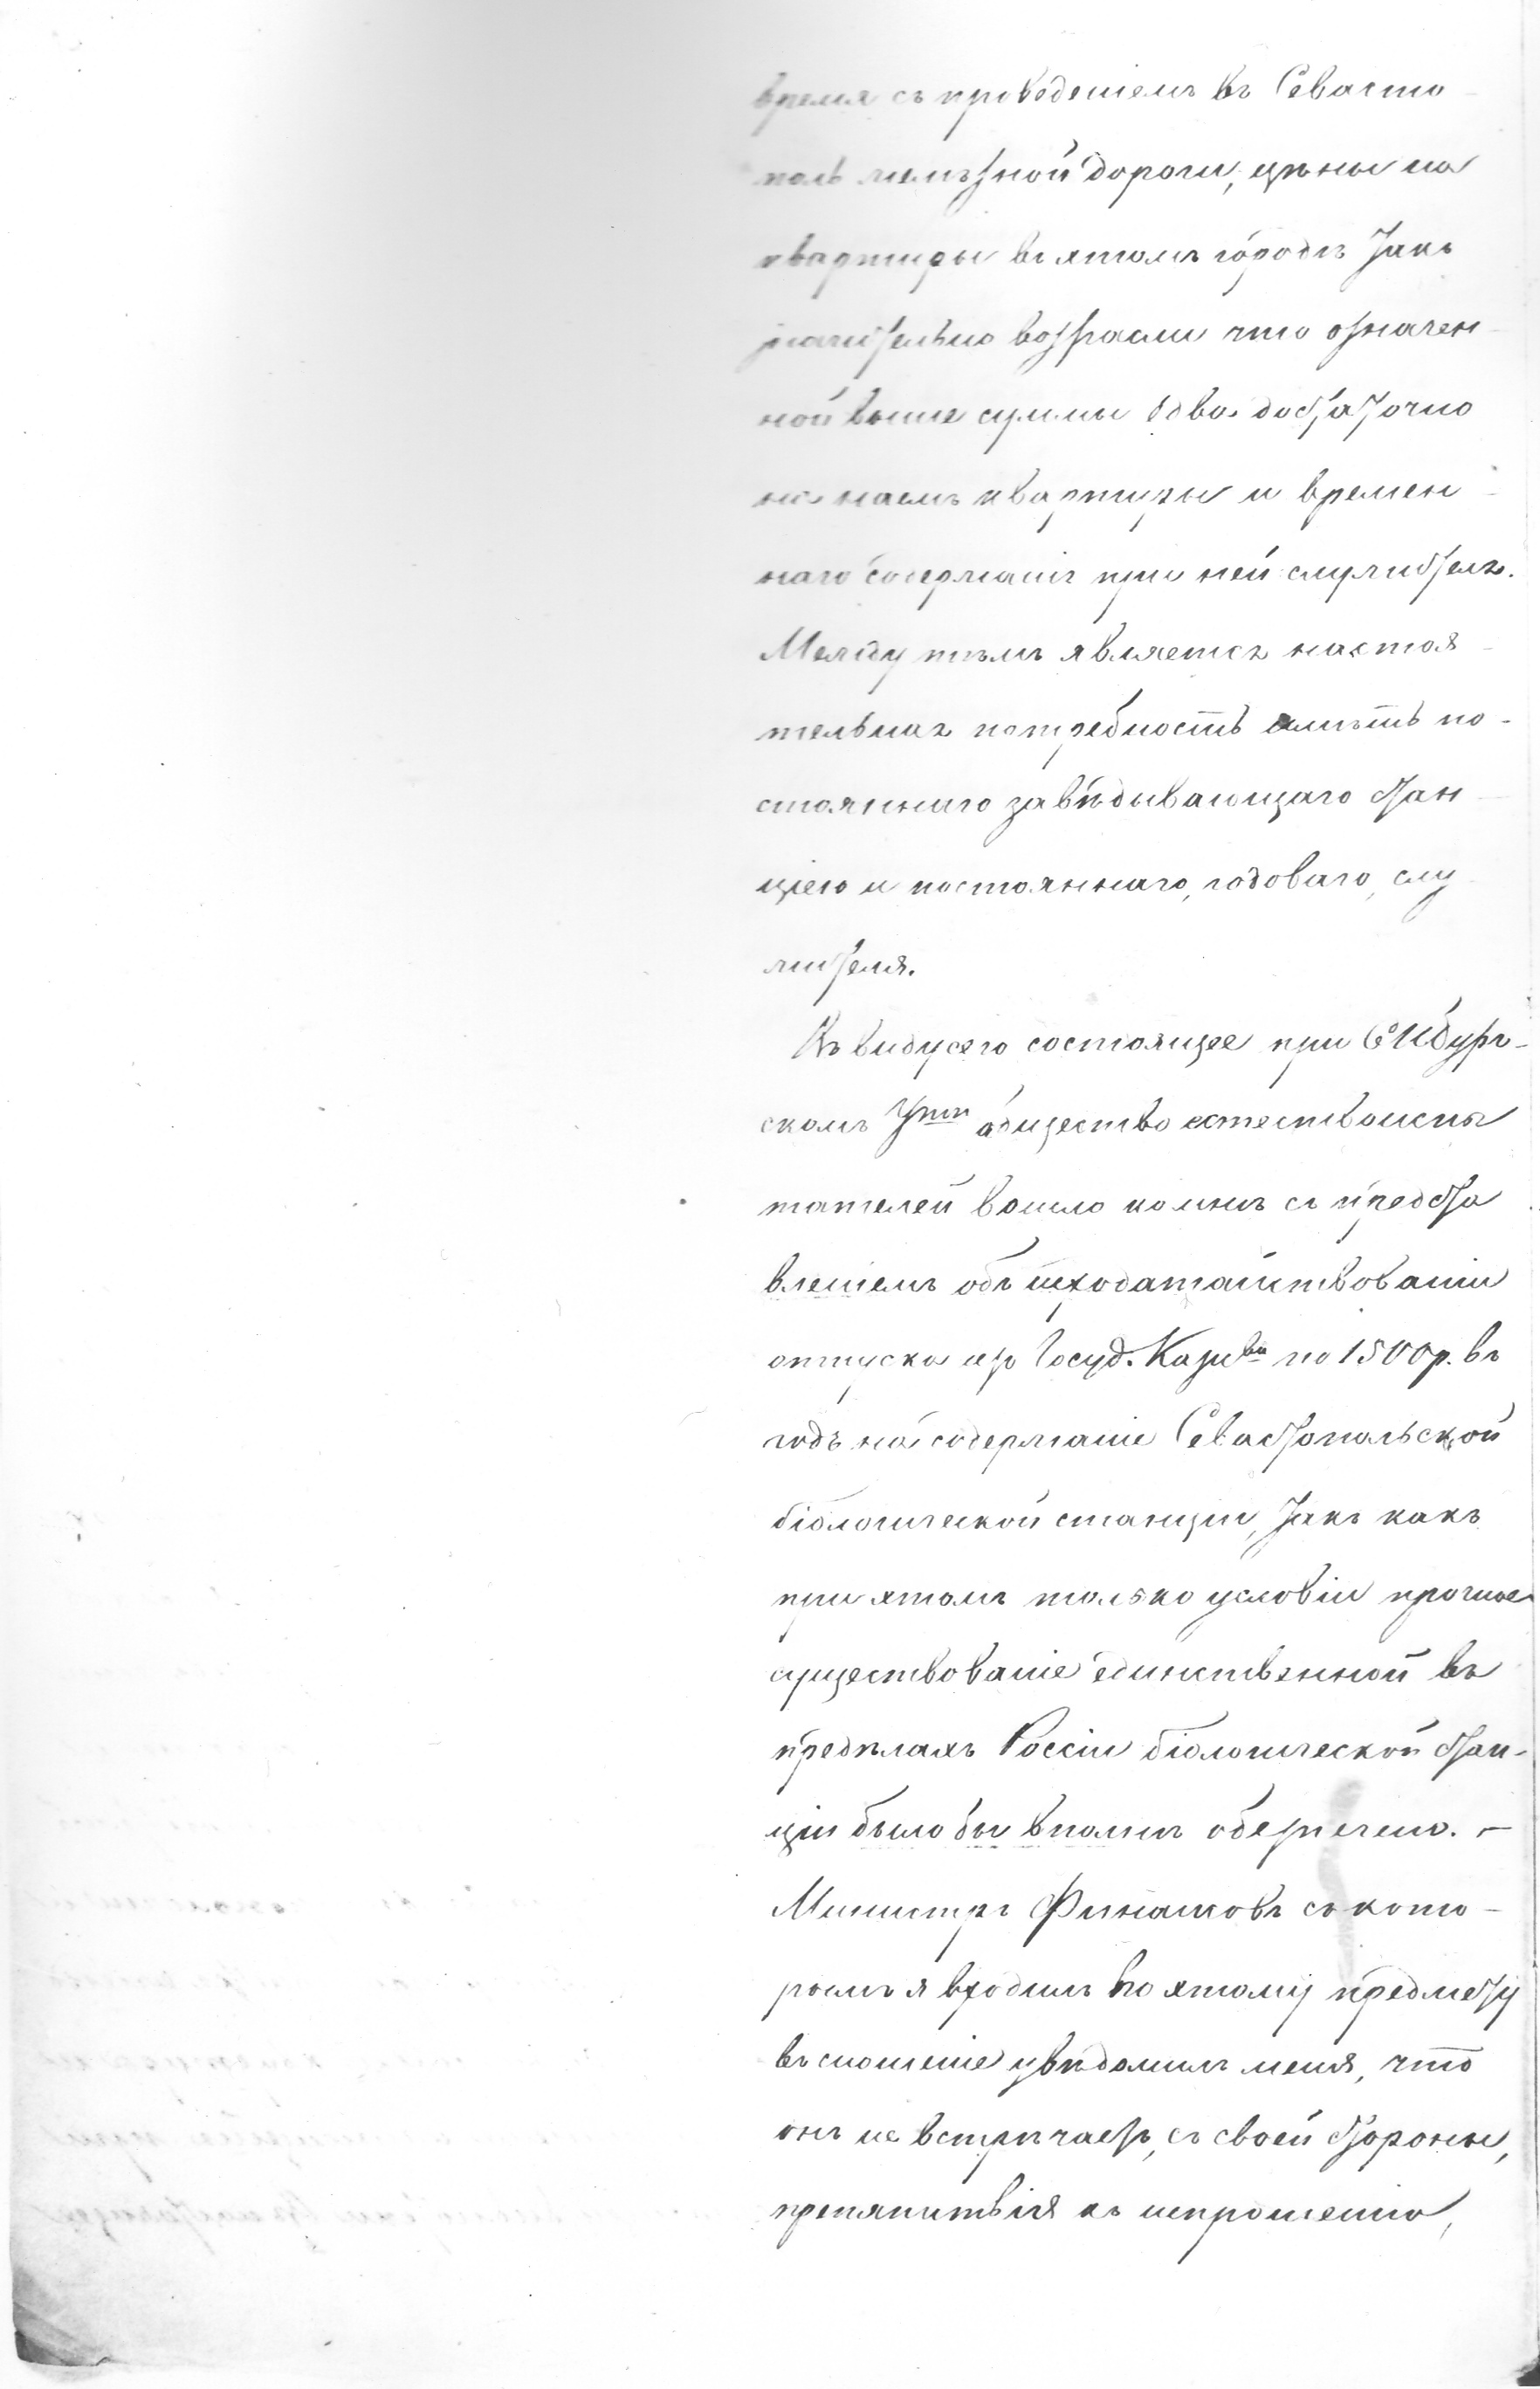 время съ проведеніемъ въ Севасто-
поль желѣзной дороги, цѣны на
квартиры въ этомъ городѣ такъ
значительно возрасли что означен-
ной выше суммы едва достаточно
на наемъ квартиры и времен-
наго содержанія при ней служителя.
Между тѣмъ является настоя-
тельная потребность имѣть по-
стояннаго завѣдывающаго стан-
ціею и постояннаго, годоваго, слу-
жителя.
Въ виду сего состоящее при СПбург-
скомъ Ун᷊тѣ общество естествоиспы
тателей вошло ко мнѣ съ предста
вленіемъ объ исходатайствованіи
отпуска изъ Госуд. Казн᷊ва по 1500 р. въ
годъ на содержаніе Севастопольской
біологической станціи, такъ какъ
при этомъ только условіи прочное
существованіе единственной въ
предѣлахъ Россіи біологической стан-
ціи было бы вполнѣ обезпечено. –
Министръ Финансовъ съ кото-
рымъ я входилъ по этому предмету
въ сношеніе увѣдомилъ меня, что
онъ не встрѣчаетъ, съ своей стороны,
препятствія къ испрошенію,